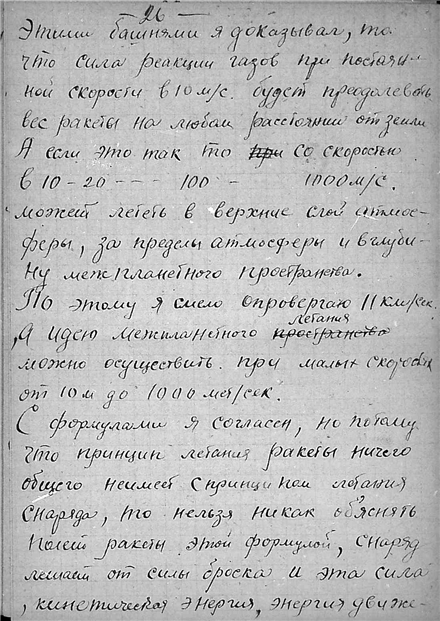 26
Этими башнями я доказывал, то
что сила реакции газов при постоян-
ной скорости в 10 м/с. будет преодолевать
вес ракеты на любом расстоянии от земли
А если это так то при со скоростью
в 10 - 20 - - - 100 - 1000 м/с.
может лететь в верхние слои атмос-
феры, за пределы атмосферы и в глуби-
ну межпланетного пространства.
По этому я смело опровергаю 11 км/сек.
А идею межпланетного пространства летания
можно осуществить при малых скоростях
от 10 м до 1000 мет/сек.
С формулами я согласен, но потому
что принцип летания ракеты ничего
общего неимеет с принципом летания
снаряда, то нельзя никак об'яснять
полет ракеты этой формулой, снаряд
летает от силы броска и эта сила
, кинетическая энергия, энергия движе-